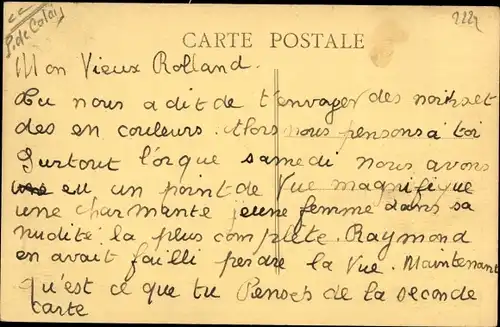 P. de Calais
2221
CARTE POSTALE
Mon Vieux Rolland.
Tu nous a dit de t'envoyer des noir et
des en couleurs. Alors nous pensons à toi
Surtout l'orque samedi nous avons
eu un point de Vue magnifique
une charmante jeune femme dans sa
nudité la plus complète. Raymond
en avait failli perdre la Vue. Maintenant
Qu'est ce que tu Penses de la seconde
carte